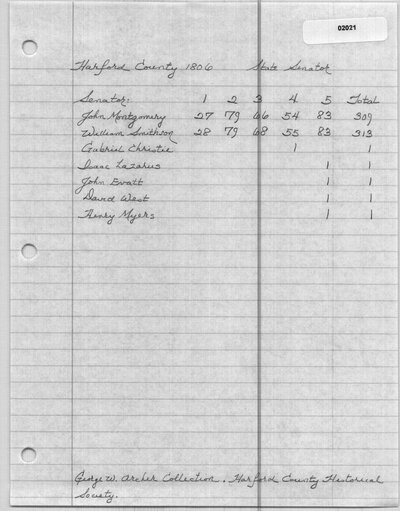 02021
Harford County 1806 State Senator
Senator: 1 2 3 4 5 Total
John Montgomery 27 79 66 54 83 309
William Smithson 28 79 68 55 83 313
Gabriel Christie 1 1
Isaac Lazarus 1 1
John Evatt 1 1
David West 1 1
Henry Myers 1 1
George W. Archer Collection. Harford County Historical
Society.